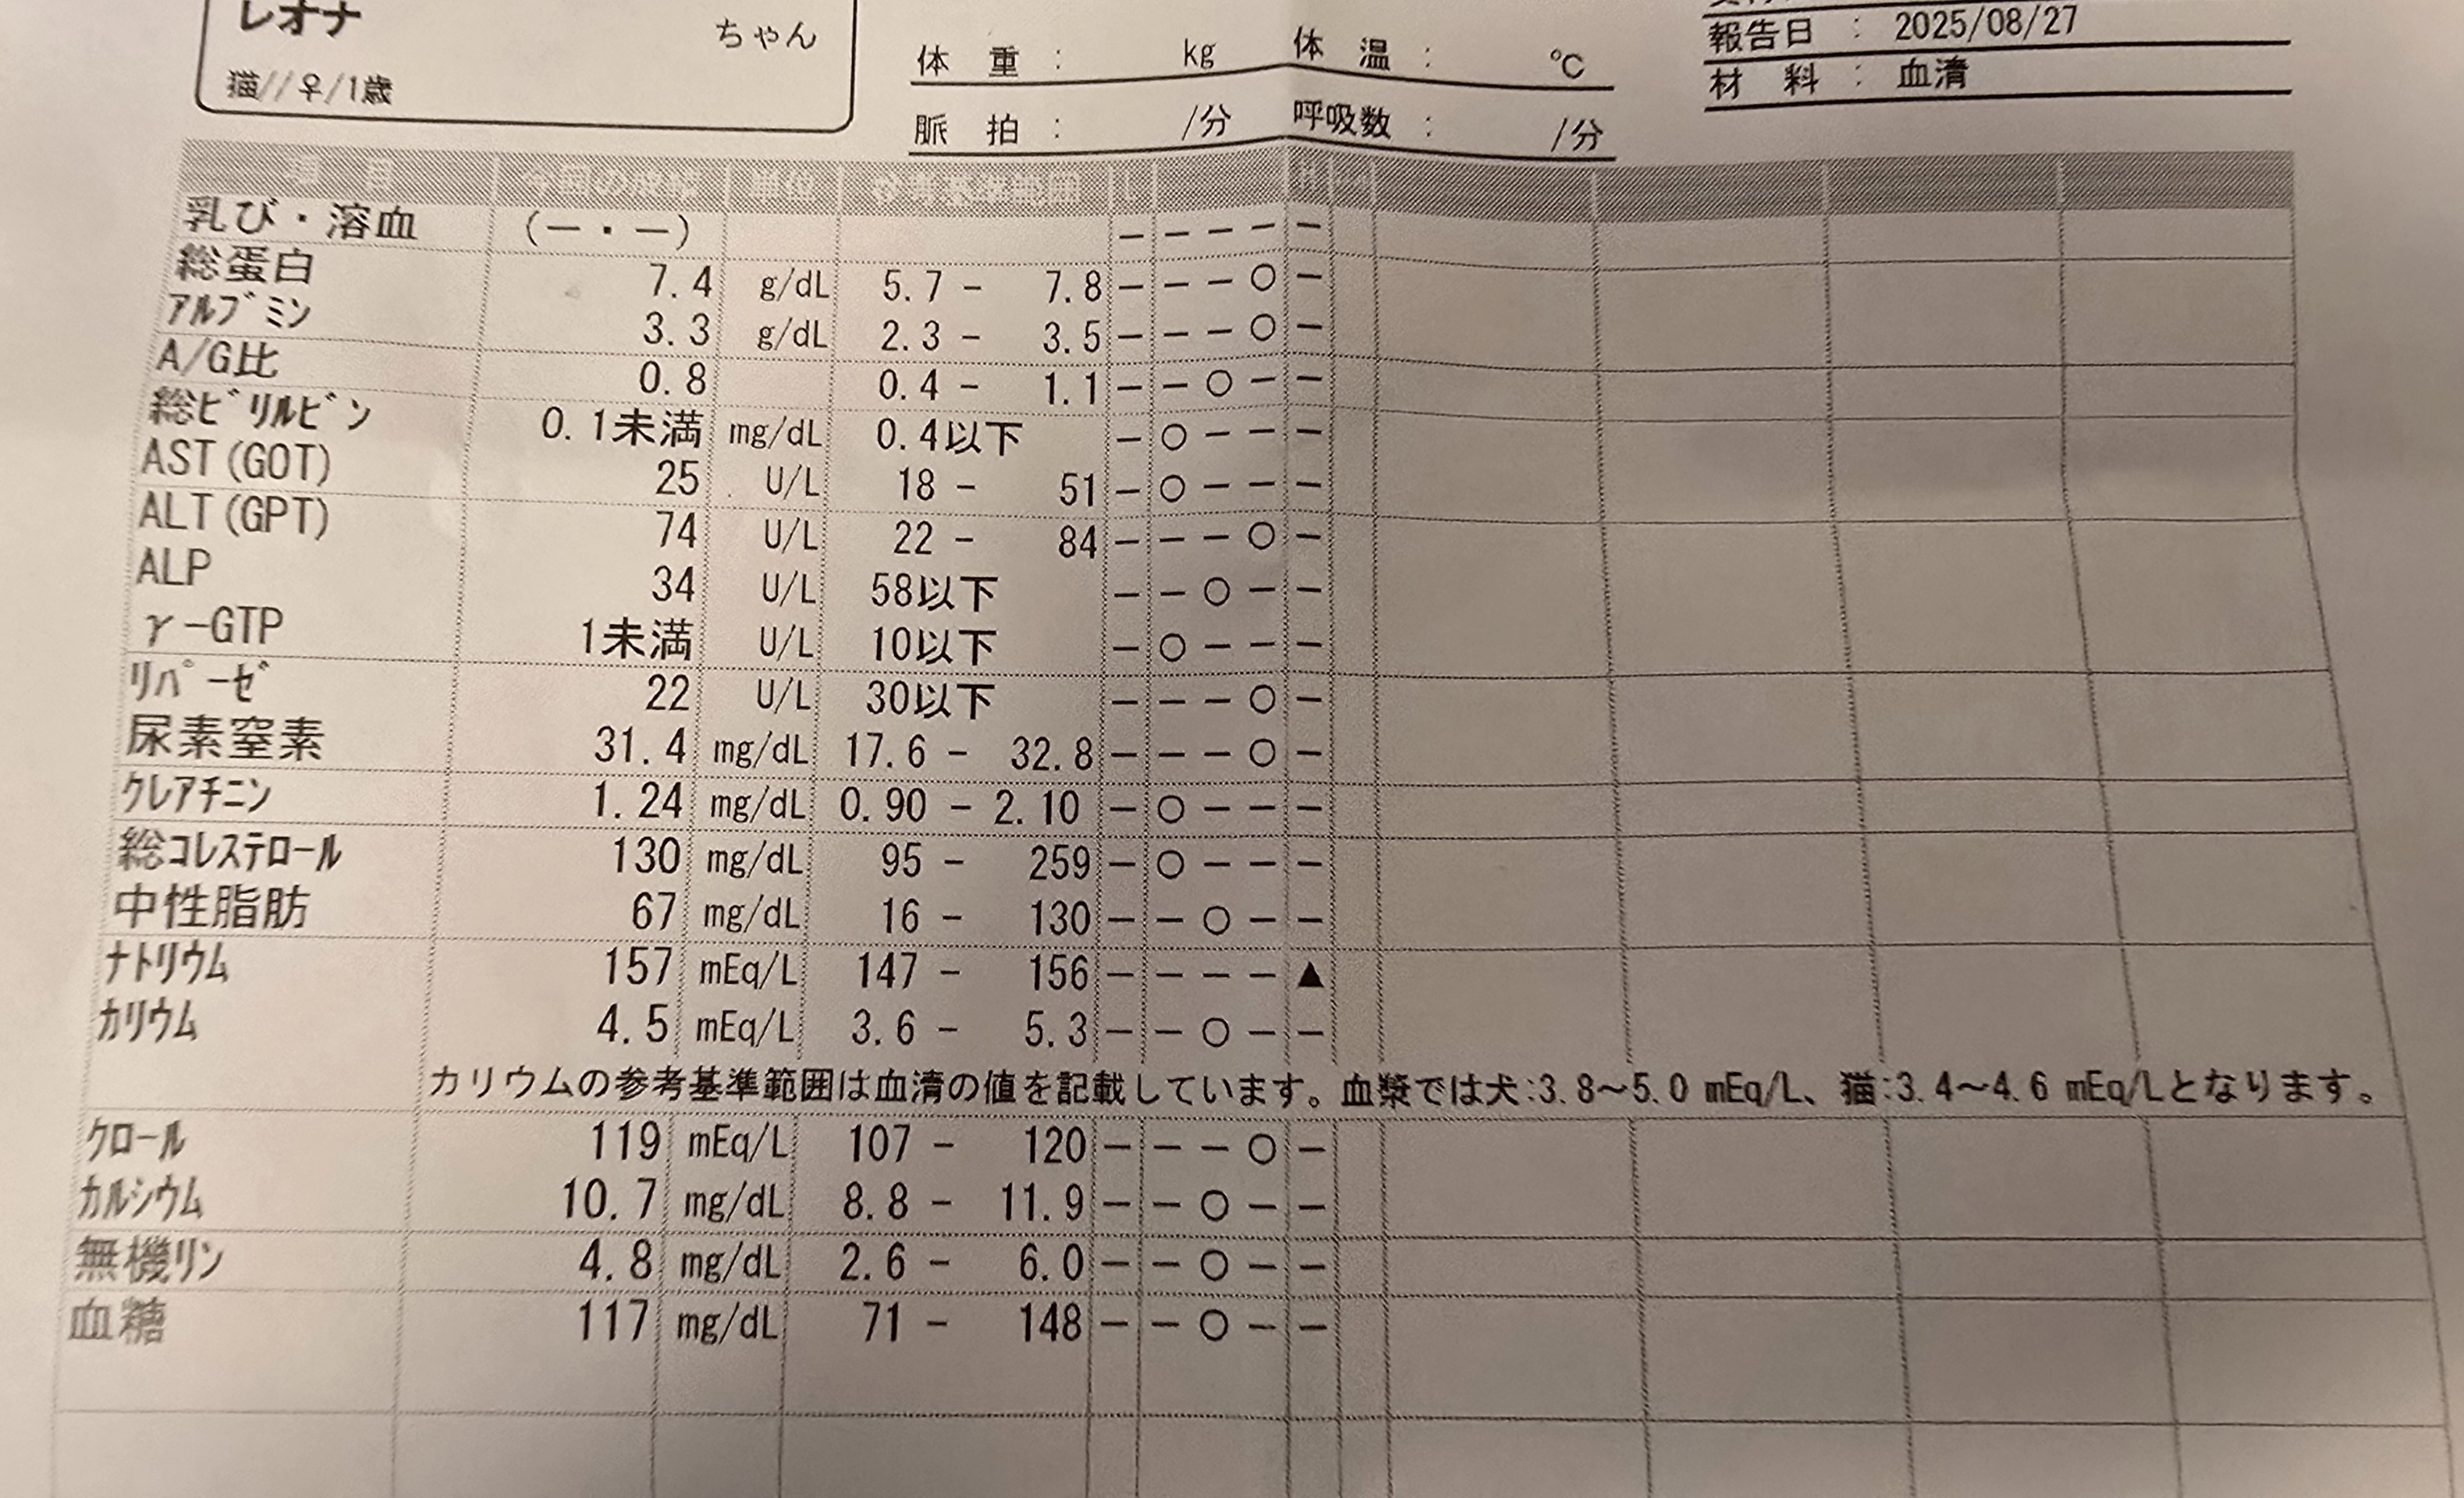 レオナ ちゃん
猫//♀/1歳
体 重 : kg 体 温 : ℃
脈 拍 : /分 呼吸数 : /分
報告日 : 2025/08/27
材 料 : 血清
項 目 今回の成績 単位 参考基準範囲 L H
乳び・溶血 (－・－) － － － － －
総蛋白 7.4 g/dL 5.7 － 7.8 － － － ○ －
ｱﾙﾌﾞﾐﾝ 3.3 g/dL 2.3 － 3.5 － － － ○ －
A/G比 0.8 0.4 － 1.1 － － ○ － －
総ﾋﾞﾘﾙﾋﾞﾝ 0.1未満 mg/dL 0.4以下 － ○ － － －
AST(GOT) 25 U/L 18 － 51 － ○ － － －
ALT(GPT) 74 U/L 22 － 84 － － － ○ －
ALP 34 U/L 58以下 － － ○ － －
γ-GTP 1未満 U/L 10以下 － ○ － － －
ﾘﾊﾟｰｾﾞ 22 U/L 30以下 － － － ○ －
尿素窒素 31.4 mg/dL 17.6 － 32.8 － － － ○ －
ｸﾚｱﾁﾆﾝ 1.24 mg/dL 0.90 － 2.10 － ○ － － －
総ｺﾚｽﾃﾛｰﾙ 130 mg/dL 95 － 259 － ○ － － －
中性脂肪 67 mg/dL 16 － 130 － － ○ － －
ﾅﾄﾘｳﾑ 157 mEq/L 147 － 156 － － － － ▲
ｶﾘｳﾑ 4.5 mEq/L 3.6 － 5.3 － － ○ － －
カリウムの参考基準範囲は血清の値を記載しています。血漿では犬:3.8～5.0 mEq/L、猫:3.4～4.6 mEq/Lとなります。
ｸﾛｰﾙ 119 mEq/L 107 － 120 － － － ○ －
ｶﾙｼｳﾑ 10.7 mg/dL 8.8 － 11.9 － － ○ － －
無機ﾘﾝ 4.8 mg/dL 2.6 － 6.0 － － ○ － －
血糖 117 mg/dL 71 － 148 － － ○ － －